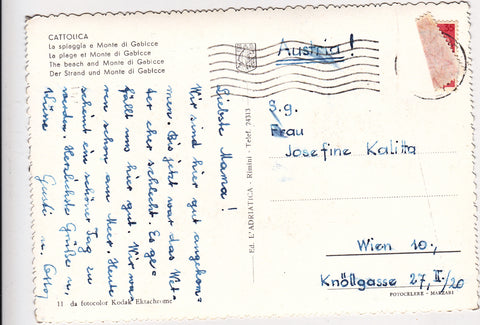 CATTOLICA
La spiaggia e Monte di Gabicce
La plage et Monte di Gabicce
The beach and Monte di Gabicce
Der Strand und Monte di Gabicce
Liebste Mama!
Wir sind hier gut angekom-
men. Bis jetzt war das Wet-
ter eher schlecht. Es ge-
fällt uns hier gut. Wir wa-
ren schon am Meer. Heute
scheint ein schöner Tag zu
werden. Herzlichste Grüße u.
Küsse
Gusti u. Otto
11 da fotocolor Kodak Ektachrome
Ed. L'ADRIATICA - Rimini - Telef. 24313
Austria!
S.g.
Frau
Josefine Kalitta
Wien 10.,
Knöllgasse 27, II/20
FOTOCELERE - MARZARI